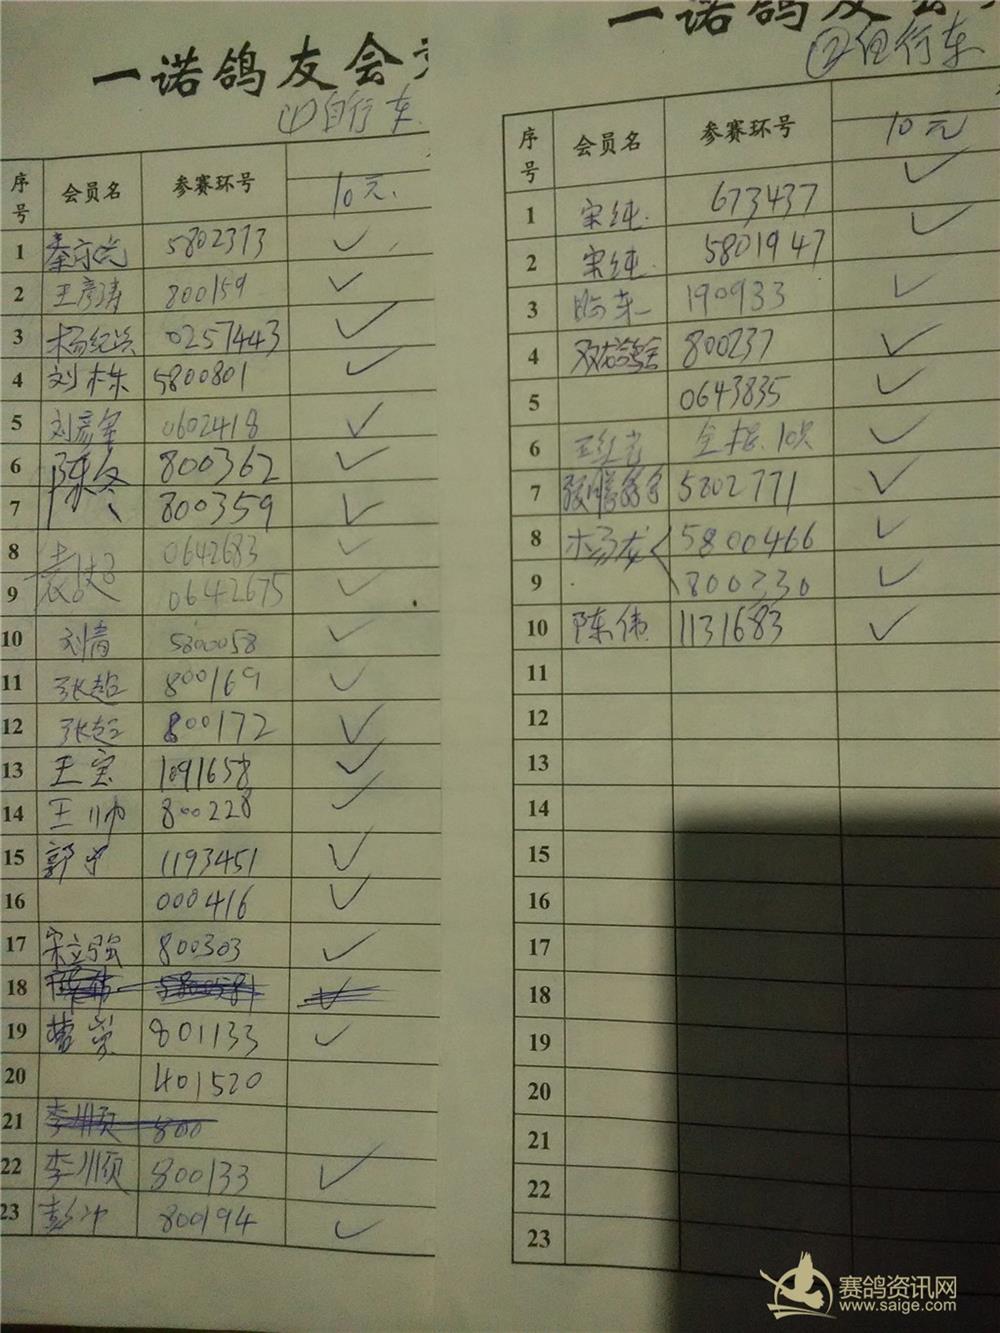 一诺鸽友会
(1)自行车
序号 会员名 参赛环号 10元
1 5802373 ✓
2 王彦涛 800159 ✓
3 杨纪兴 0257443 ✓
4 刘栋 5800801 ✓
5 刘彦军 0602418 ✓
6 陈冬 800362 ✓
7 800359 ✓
8 0642683 ✓
9 0642675 ✓
10 刘青 5800058 ✓
11 张超 800169 ✓
12 张超 800172 ✓
13 王宝 1091658 ✓
14 王帅 800228 ✓
15 郭 1193451 ✓
16 000416 ✓
17 宋立强 800303 ✓
18
19 曹荣 801133 ✓
20 401520
21 李顺 800
22 李顺 800133 ✓
23 彭冲 800194 ✓
一诺鸽友会
(2)自行车
序号 会员名 参赛环号 10元
✓
1 宋纯 673437
2 宋纯 5801947 ✓
3 190933 ✓
4 800237 ✓
5 0643835 ✓
6 王红光 ✓
7 5802771 ✓
8 杨龙 5800466 ✓
9 800230 ✓
10 陈伟 1131683 ✓
11
12
13
14
15
16
17
18
19
20
21
22
23
赛鸽资讯网
www.saige.com